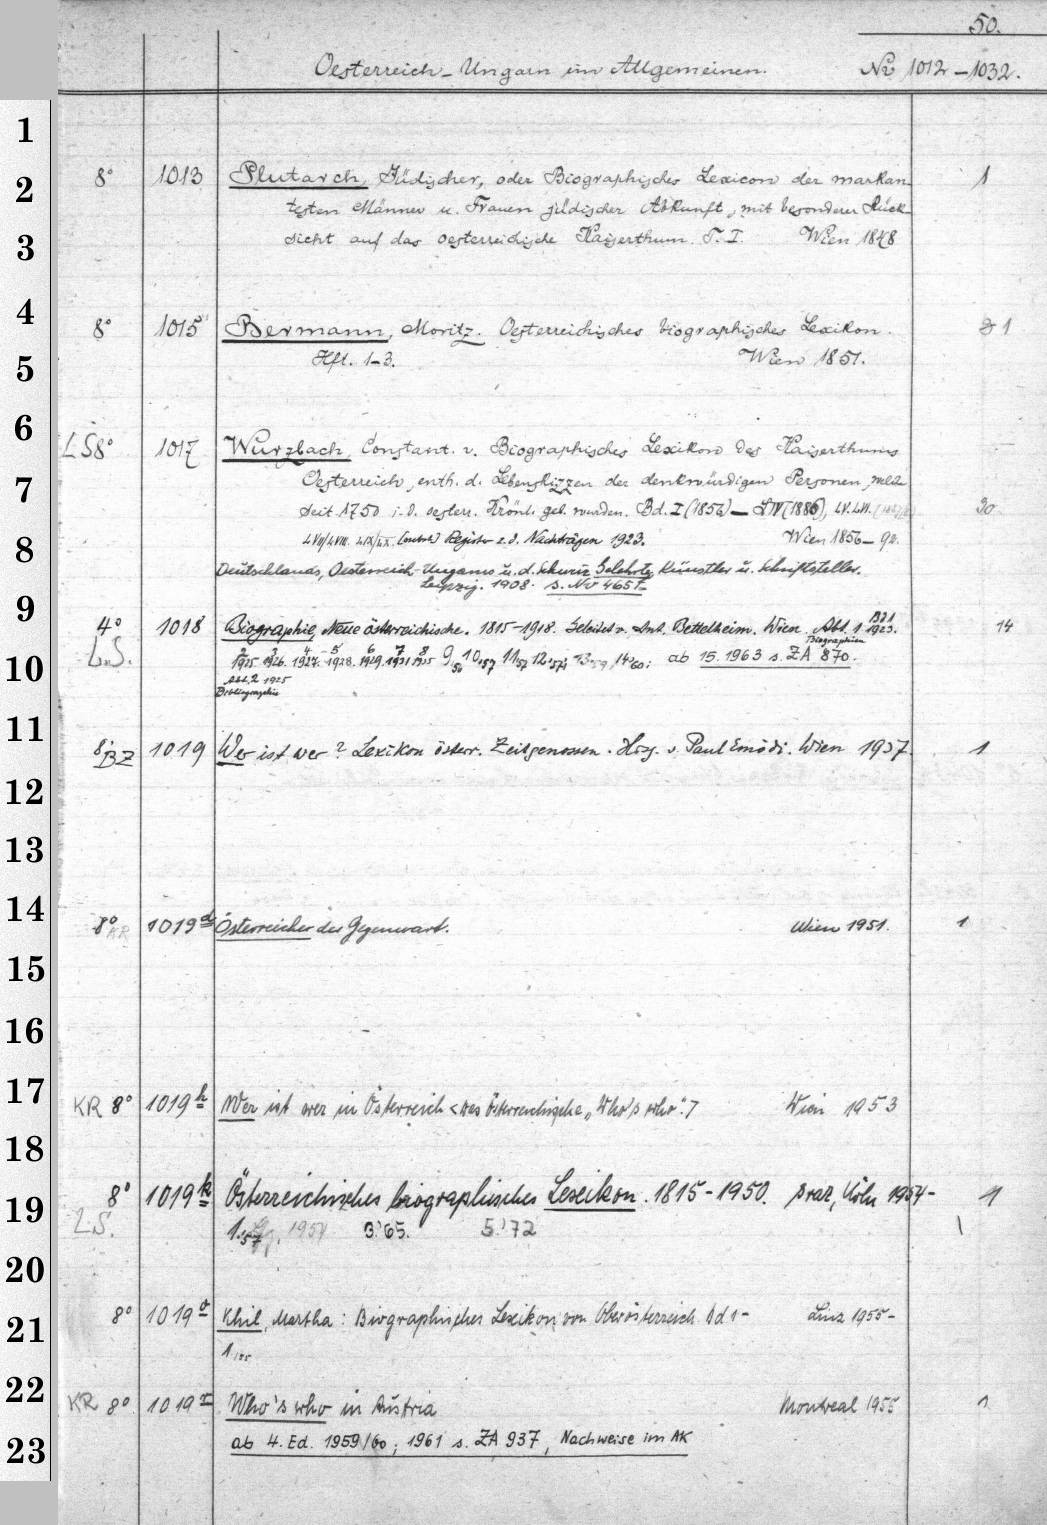 50.
Oesterreich-Ungarn im Allgemeinen. No 1012-1032.
1
2 8° 1013 Plutarch, Jüdischer, oder Biographisches Lexicon der markan 1
testen Männer u. Frauen jüdischer Abkunft, mit besonderer Rück
3 sicht auf das oesterreichische Kaiserthum. T. I. Wien 1848
4 8° 1015 Bermann, Moritz. Oesterreichisches biographisches Lexikon. 1
5 Hft. 1-3. Wien 1851.
6 LS 8° 1017 Wurzbach, Constant. v. Biographisches Lexikon des Kaiserthums
7 Oesterreich, enth. d. Lebenskizzen der denkwürdigen Personen, welche
seit 1750 i. d. oesterr. Krönl. gel. wurden. Bd. I (1856) — LIV (1886), LV. LVI. 30
8 LVII/LVIII. LIX/LX. Register z. d. Nachträgen 1923. Wien 1856-92.
Deutschlands, Oesterreich-Ungarns u. d. Schweiz Gelehrte, Künstler u. Schriftsteller.
Leipzig. 1908. s. No 465t
9 4° 1018 Biographie, Neue österreichische. 1815-1918. Geleitet v. Ant. Bettelheim. Wien. Abt. 1 Bd 1 1923. 14
Biographien
10 L.S. 2 1925 3 1926. 4 1927. 5 1928. 6 1929. 7 1931 8 1935 9,56 10,57 11,57 12,57 13,59 14,60; ab 15.1963 s. ZA 870.
Abt. 2 1925
Bibliographie
11 8° BZ 1019 Wer ist wer? Lexikon österr. Zeitgenossen. Hrsg. v. Paul Emödi. Wien 1937. 1
12
13
14 8° KR 1019d Österreicher der Gegenwart. Wien 1951. 1
15
16
17 KR 8° 1019h Wer ist wer in Österreich <das österreichische „Who's who".> Wien 1953
18
19 8° 1019k Österreichisches biographisches Lexikon. 1815-1950. Graz, Köln 1954- 1
L.S. 1.'57 1954 3.'65. 5.'72
20
21 8° 1019o Khil, Martha: Biographisches Lexikon von Oberösterreich. Bd 1- Linz 1955-
1
22 KR 8° 1019r Who's who in Austria Montreal 1955 1
23 ab 4. Ed. 1959/60; 1961 s. ZA 937, Nachweise im AK